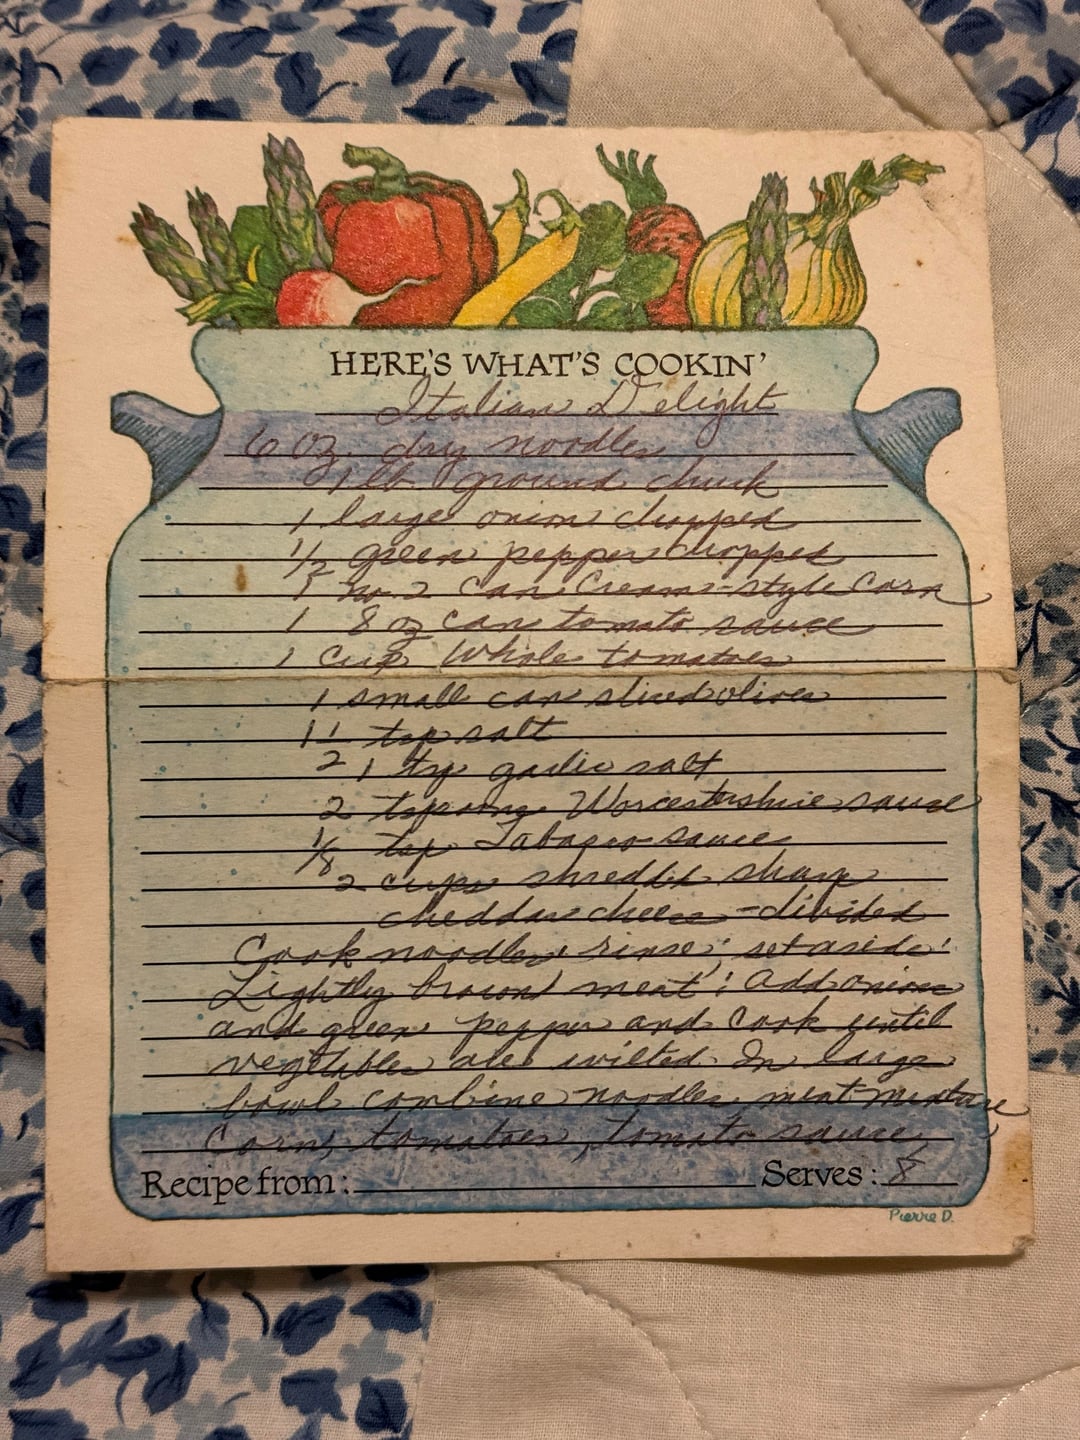 HERE'S WHAT'S COOKIN'
Italian Delight
6 oz. dry noodles
1 lb ground chuck
1 large onion chopped
1/2 green pepper chopped
1 no. 2 can Cream-style Corn
1 8 oz can tomato sauce
1 cup Whole tomatoes
1 small can sliced olives
1 1/2 tsp salt
1 tsp garlic salt
2 tspoons Worcestershire sauce
1/8 tsp Tabasco sauce
2 cups shredded sharp
cheddar cheese - divided
Cook noodles; rinse; set aside;
Lightly brown meat; Add onion
and green pepper and Cook until
vegetables are wilted In large
bowl combine noodles, meat mixture
Corn, tomatoes, tomato sauce,
Recipe from: Serves: 8
Pierre D.